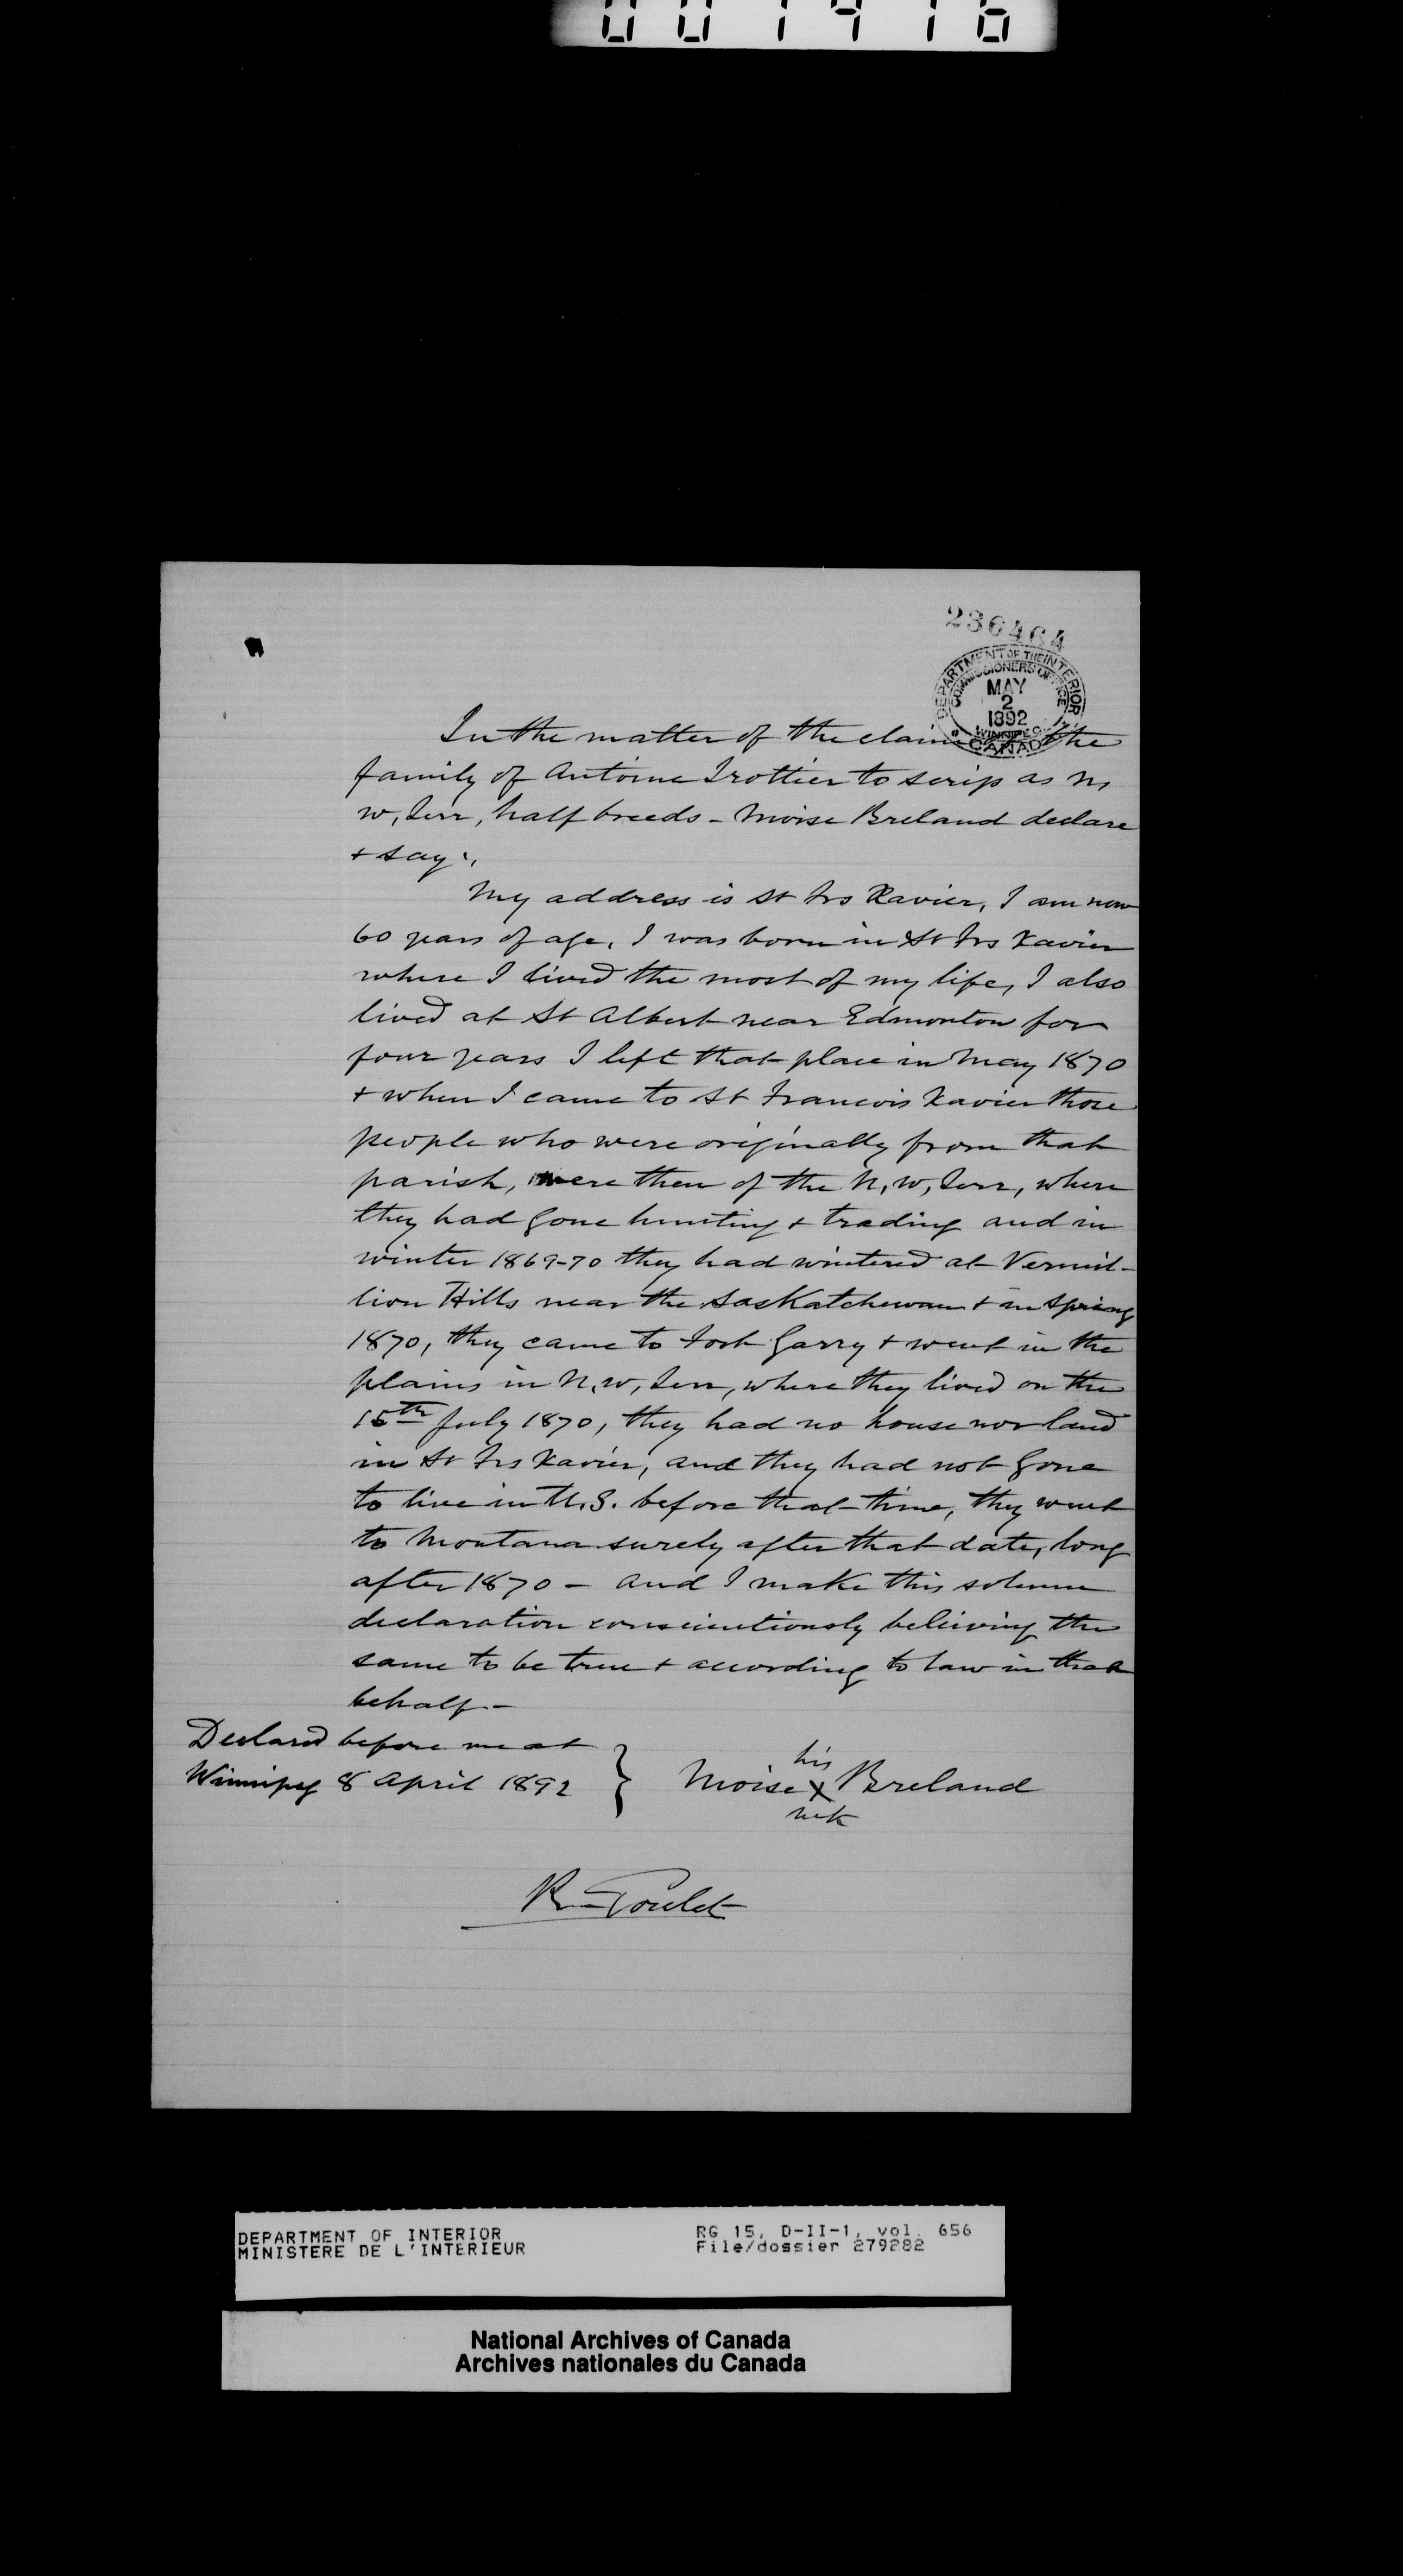 001416
236464
DEPARTMENT OF THE INTERIOR
COMMISSIONERS OFFICE
MAY
2
1892
WINNIPEG
CANADA
In the matter of the claim the
family of Antoine Trottier to scrip as N,
W, Terr, half breeds - Moise Breland declare
+ say:,
My address is St Frs Xavier, I am now
60 years of age, I was born in St Frs Xavier
where I lived the most of my life, I also
lived at St Albert near Edmonton for
four years I left that place in May 1870
+ when I came to St Francois Xavier those
people who were originally from that
parish, were then of the N, W, Terr, where
they had gone hunting + trading and in
winter 1869-70 they had wintered at Vermil-
lion Hills near the Saskatchewan + in spring
1870, they came to Fort Garry + went in the
plains in N, W, Terr, where they lived on the
15th July 1870, they had no house nor land
in St Frs Xavier, and they had not gone
to live in U.S. before that time, they went
to Montana surely after that date, long
after 1870 - and I make this solemn
declaration conscientiously beleiving the
same to be true + according to law in that
behalf -
Declared before me at
Winnipeg 8 April 1892 }
his
Moise X Breland
mk
R Goulet
DEPARTMENT OF INTERIOR
MINISTERE DE L'INTERIEUR
RG 15, D-II-1, vol. 656
File/dossier 279282
National Archives of Canada
Archives nationales du Canada